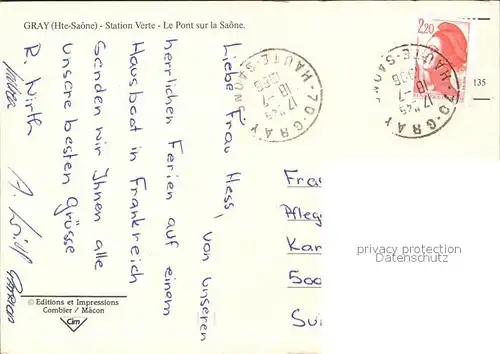 GRAY (Hte-Saône) - Station Verte - Le Pont sur la Saône.
Liebe Frau Hess, von unseren
herrlichen Ferien auf einem
Hausboot in Frankreich
senden wir Ihnen alle
unsere besten Grüsse
R. Wirth
2,20
70-GRAY
HAUTE-SAONE
17 H45
18-7
1986
70-GRAY
HAUTE-SAONE
17 H45
18-7
1986
135
Fra
Pfleg
Kar
500
Sui
privacy protection
Datenschutz
© Editions et Impressions
Combier / Mâcon
Cim